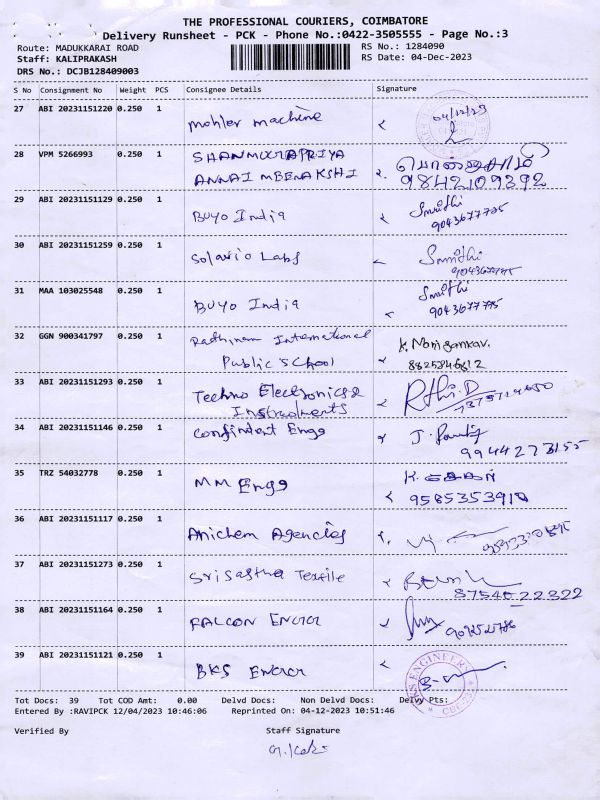 THE PROFESSIONAL COURIERS, COIMBATORE
Delivery Runsheet - PCK - Phone No.:0422-3505555 - Page No.:3
Route: MADUKKARAI ROAD RS No.: 1284090
Staff: KALIPRAKASH RS Date: 04-Dec-2023
DRS No.: DCJB128409003
S No Consignment No Weight PCS Consignee Details Signature
27 ABI 20231151220 0.250 1 Mohler machine 04/12/23
28 VPM 5266993 0.250 1 SHANMUGAPRIYA
ANNAI MEENAKSHI 9842109392
29 ABI 20231151129 0.250 1 BUYO India Smrithi
9043677775
30 ABI 20231151259 0.250 1 Solario Labs Smrithi
9043677775
31 MAA 103025548 0.250 1 BUYO India Smrithi
9043677775
32 GGN 900341797 0.250 1 Rathinam International
Public School 8825846812
33 ABI 20231151293 0.250 1 Techno Electronics &
Instruments
34 ABI 20231151146 0.250 1 Confident Engg
9944273155
35 TRZ 54032778 0.250 1 MM Engg
9585353910
36 ABI 20231151117 0.250 1 Anichem Agencies
37 ABI 20231151273 0.250 1 Sri Sastha Textile
8754022322
38 ABI 20231151164 0.250 1 FALCON ENGG
39 ABI 20231151121 0.250 1 BKS ENGG
BKS ENGINEERS
Tot Docs: 39 Tot COD Amt: 0.00 Delvd Docs: Non Delvd Docs: Delvy Pts:
Entered By :RAVIPCK 12/04/2023 10:46:06 Reprinted On: 04-12-2023 10:51:46
Verified By Staff Signature